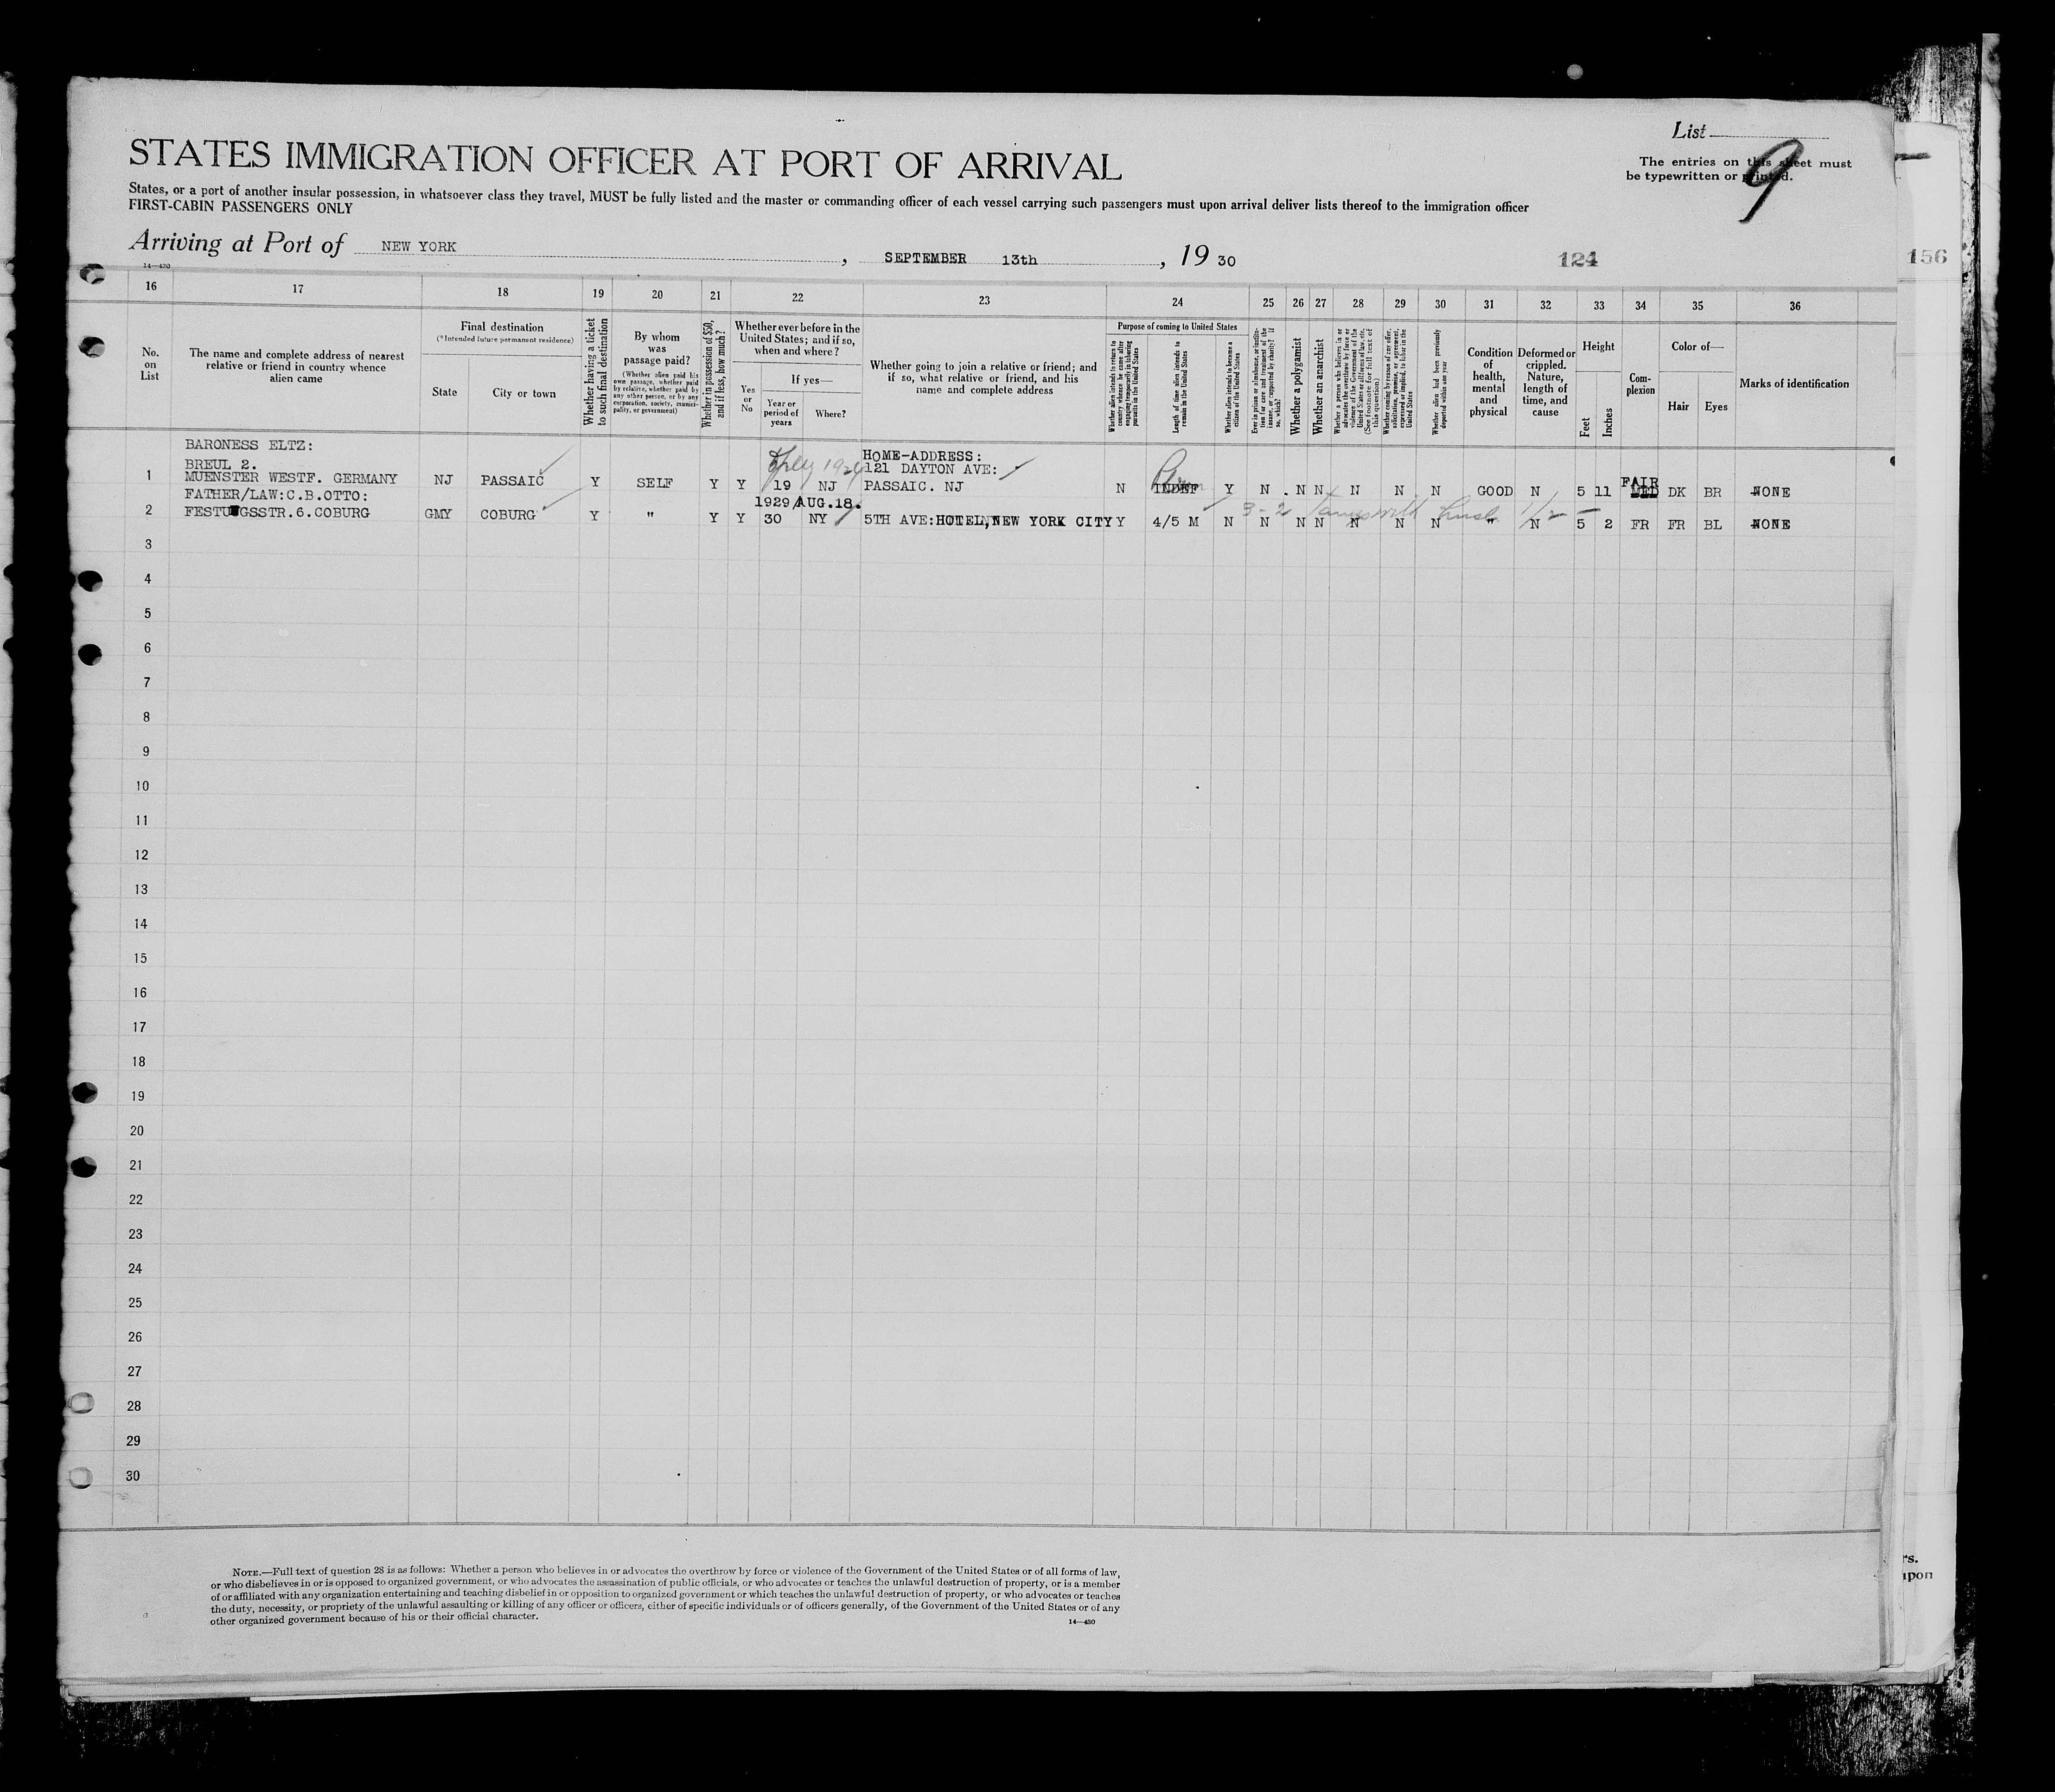 List
9
The entries on this sheet must
be typewritten or printed.
STATES IMMIGRATION OFFICER AT PORT OF ARRIVAL
States, or a port of another insular possession, in whatsoever class they travel, MUST be fully listed and the master or commanding officer of each vessel carrying such passengers must upon arrival deliver lists thereof to the immigration officer
FIRST-CABIN PASSENGERS ONLY
Arriving at Port of NEW YORK, SEPTEMBER 13th, 19 30
124
156
14—430
16 17 18 19 20 21 22 23 24 25 26 27 28 29 30 31 32 33 34 35 36
No. on List
The name and complete address of nearest relative or friend in country whence alien came
Final destination
(*Intended future permanent residence)
State
City or town
Whether having a ticket to such final destination
By whom was passage paid?
(Whether alien paid his own passage, whether paid by relative, whether paid by any other person, or by any corporation, society, municipality, or government)
Whether in possession of $50, and if less, how much?
Whether ever before in the United States; and if so, when and where?
Yes or No
If yes—
Year or period of years
Where?
Whether going to join a relative or friend; and if so, what relative or friend, and his name and complete address
Purpose of coming to United States
Whether alien intends to return to country whence he came after engaging temporarily in laboring pursuits in the United States
Length of time alien intends to remain in the United States
Whether alien intends to become a citizen of the United States
Ever in prison or almshouse, or institution for care and treatment of the insane, or supported by charity? If so, which?
Whether a polygamist
Whether an anarchist
Whether a person who believes in or advocates the overthrow by force or violence of the Government of the United States or all forms of law, etc. (See footnote for full text of this question)
Whether coming by reason of any offer, solicitation, promise, or agreement, expressed or implied, to labor in the United States
Whether alien had been previously deported within one year
Condition of health, mental and physical
Deformed or crippled. Nature, length of time, and cause
Height
Feet
Inches
Complexion
Color of—
Hair
Eyes
Marks of identification
BARONESS ELTZ:
BREUL 2.
HOME-ADDRESS:
121 DAYTON AVE:
1 MUENSTER WESTF. GERMANY NJ PASSAIC Y SELF Y Y 19 NJ PASSAIC. NJ N INDEF Y N N N N N N GOOD N 5 11 FAIR MED DK BR NONE
FATHER/LAW:C.B.OTTO:
1929/AUG.18.
2 FESTUNGSSTR.6.COBURG GMY COBURG Y " Y Y 30 NY 5TH AVE:HOTEL,NEW YORK CITY Y 4/5 M N N N N N N N " N 5 2 FR FR BL NONE
3
4
5
6
7
8
9
10
11
12
13
14
15
16
17
18
19
20
21
22
23
24
25
26
27
28
29
30
NOTE.—Full text of question 28 is as follows: Whether a person who believes in or advocates the overthrow by force or violence of the Government of the United States or of all forms of law,
or who disbelieves in or is opposed to organized government, or who advocates the assassination of public officials, or who advocates or teaches the unlawful destruction of property, or is a member
of or affiliated with any organization entertaining and teaching disbelief in or opposition to organized government or which teaches the unlawful destruction of property, or who advocates or teaches
the duty, necessity, or propriety of the unlawful assaulting or killing of any officer or officers, either of specific individuals or of officers generally, of the Government of the United States or of any
other organized government because of his or their official character.
14—430
rs.
upon